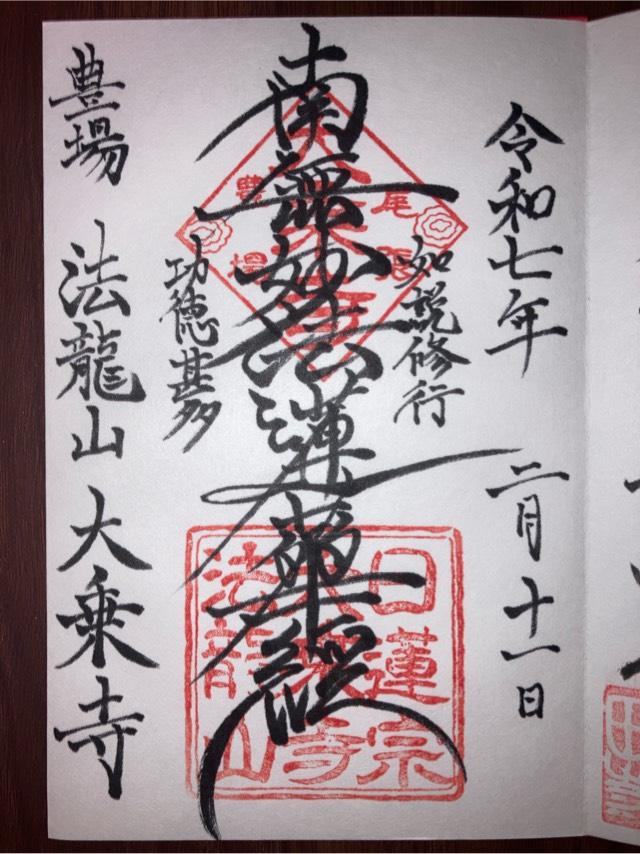 令和七年 二月十一日
如説修行
南無妙法蓮華経
功徳甚多
豊場 法龍山 大乗寺
尾張
豊場
日蓮宗
大乗寺
法龍山